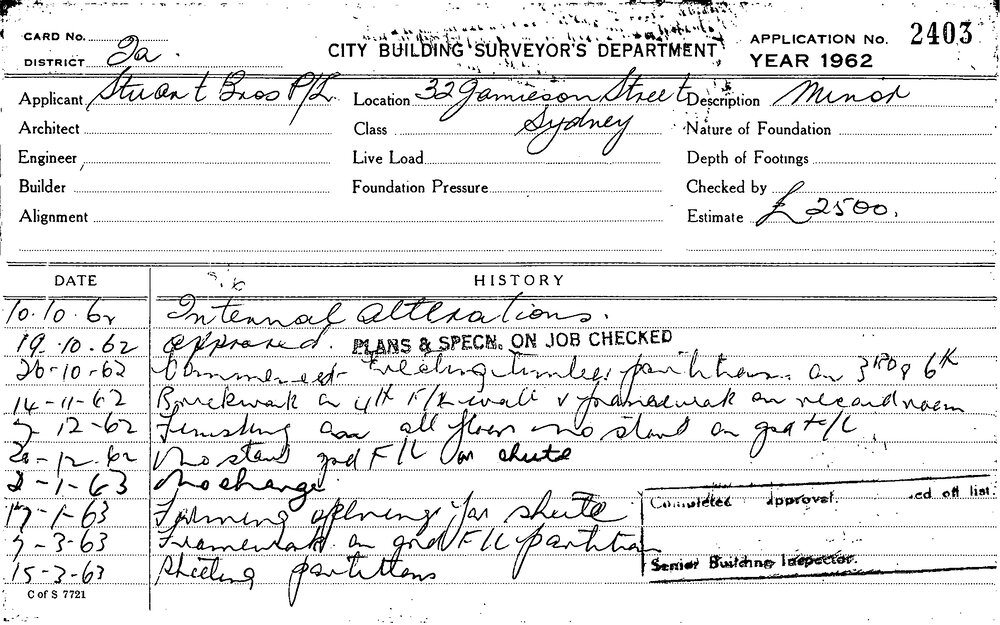 CARD No.
DISTRICT 2a.
CITY BUILDING SURVEYOR'S DEPARTMENT
APPLICATION No. 2403
YEAR 1962
Applicant Stuart Bros P/L. Location 32 Jamieson Street Description Minor
Architect Class Sydney Nature of Foundation
Engineer Live Load Depth of Footings
Builder Foundation Pressure Checked by
Alignment Estimate £2500.
DATE HISTORY
10.10.62 Internal Alterations.
19.10.62 approved. PLANS & SPECN. ON JOB CHECKED
26-10-62 Commenced Erecting timber partitions on 3RD & 6th
14-11-62 Brickwork on 4th F/K walls & framework on record room
12-62 Finishing all floors no start on grd F/L
12.62 No start grd F/L or shute
1-63 No change
17-1-63 Forming openings for shute
7-3-63 Framework on grd F/L partition
15-3-63 Sheeting partitions
Completed approval. ed off list.
Senior Building Inspector.
C of S 7721